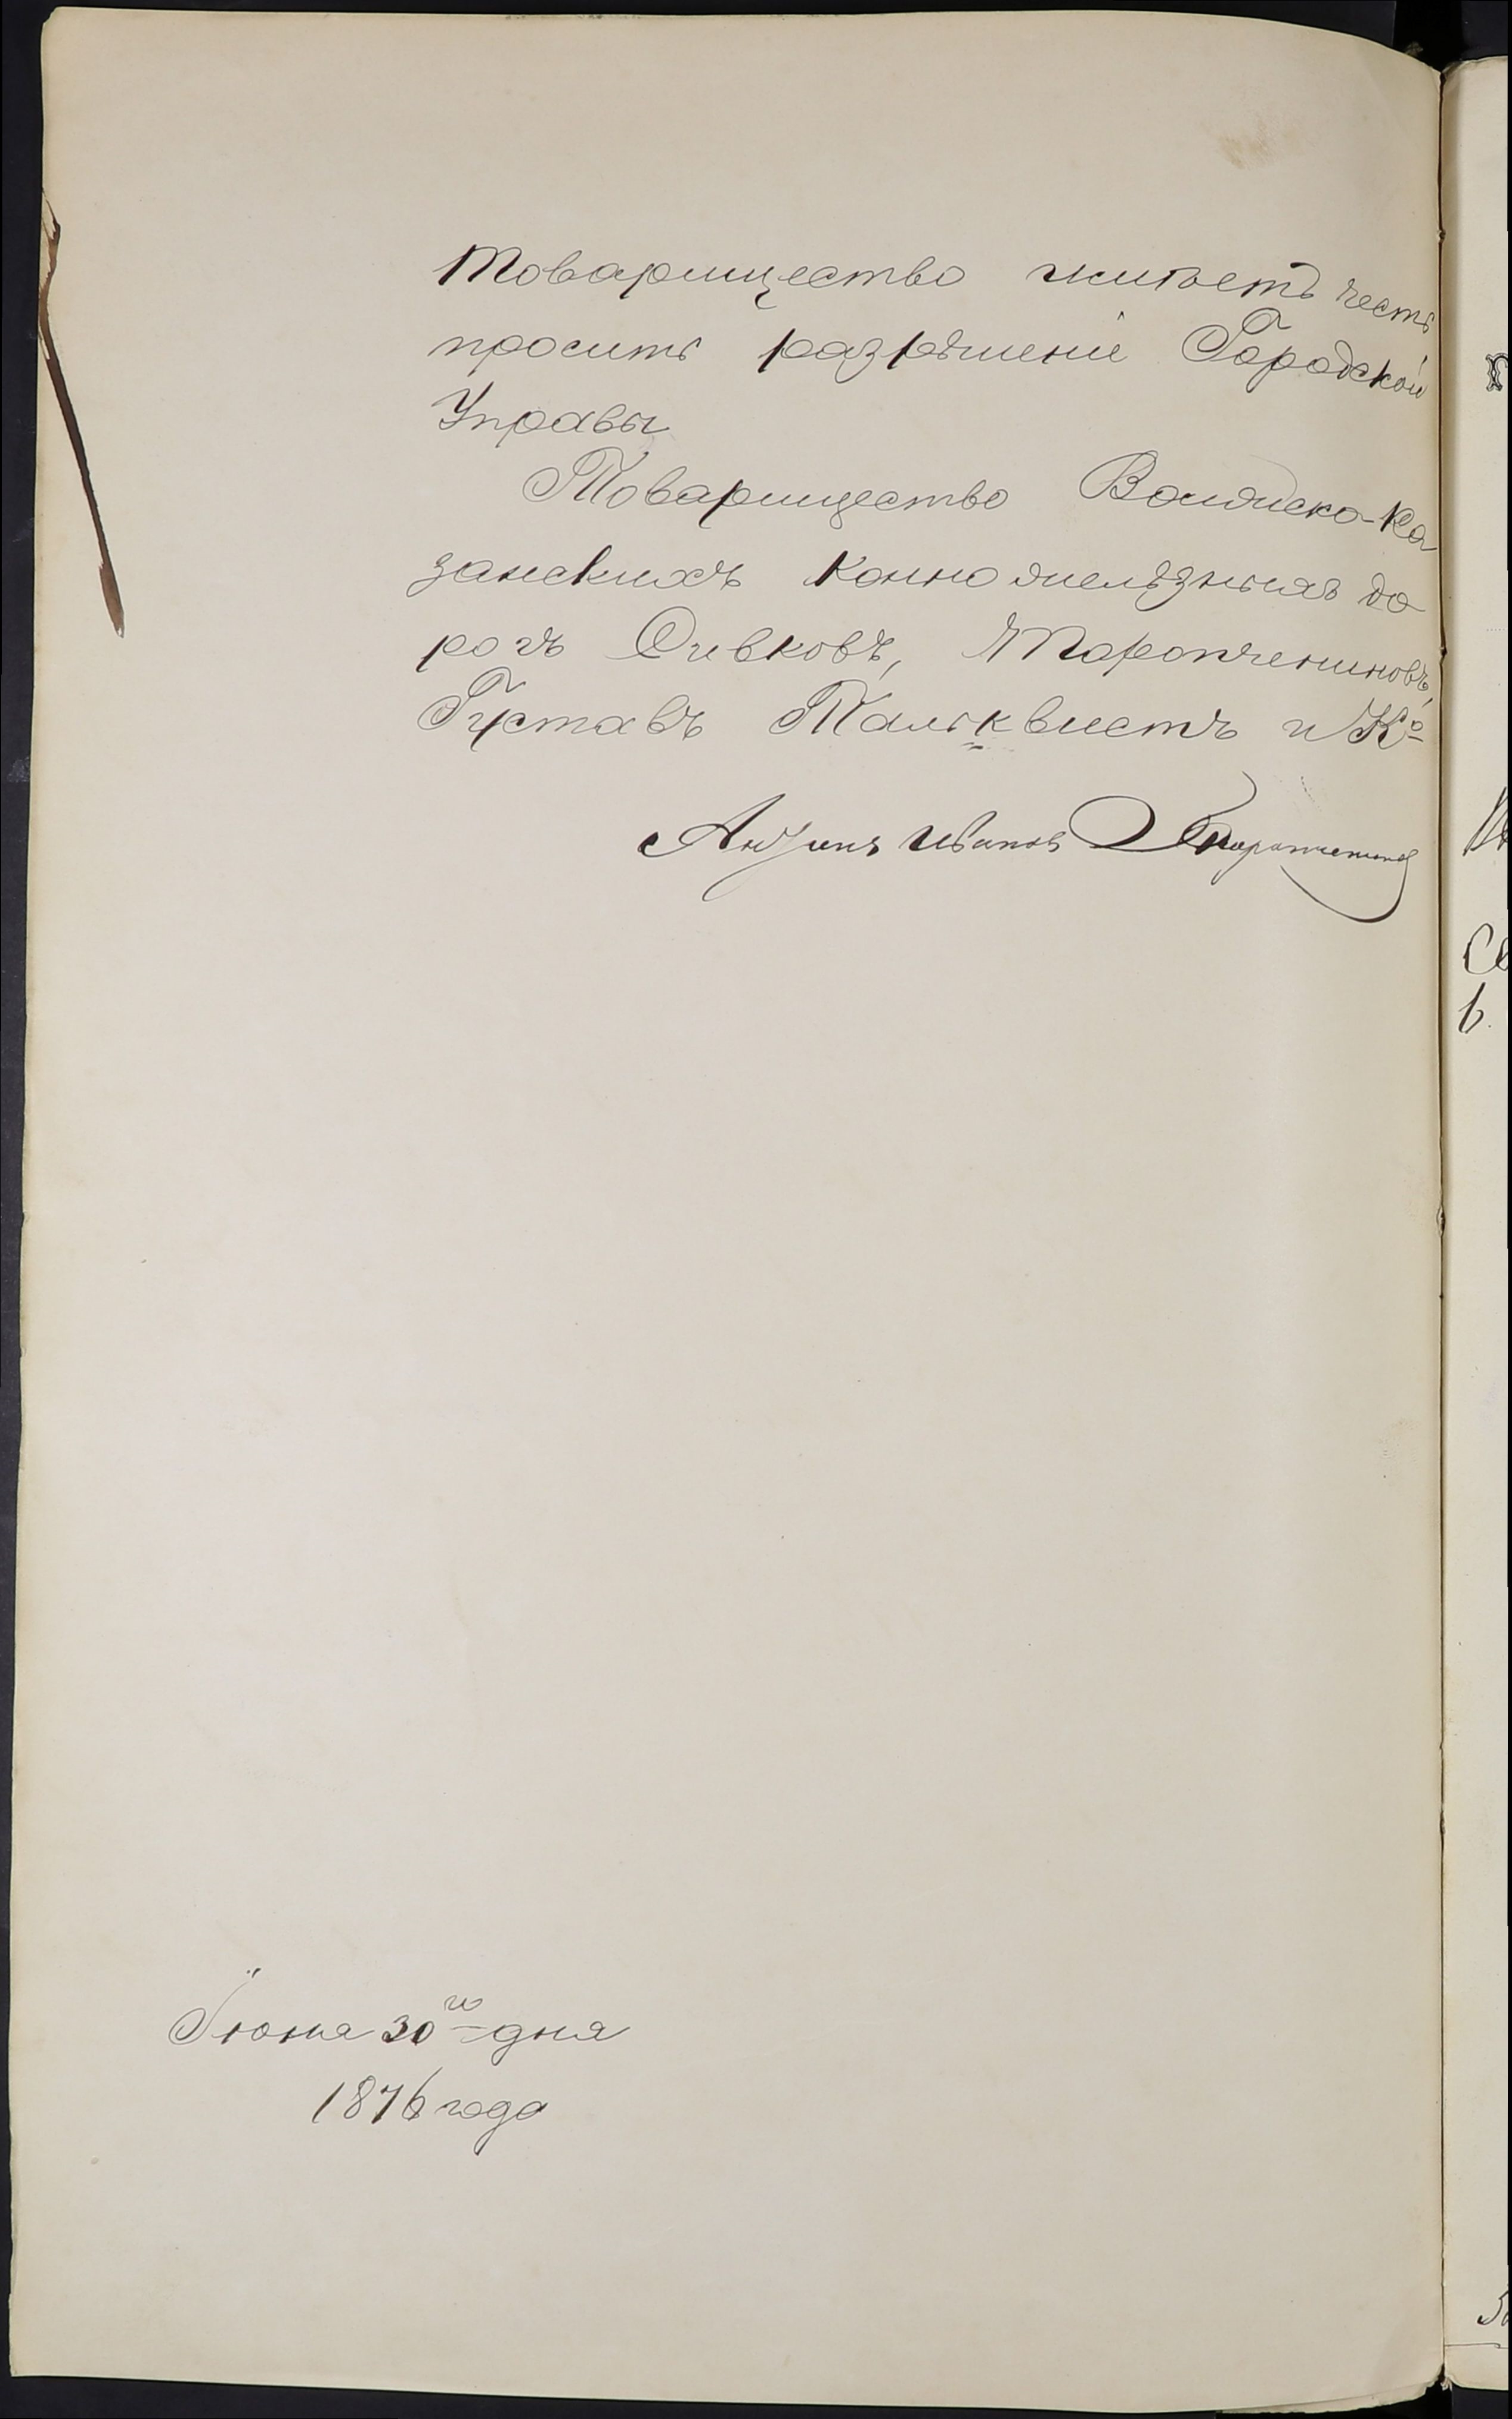 Товарищество имѣетъ честь
просить разрѣшеніе Городской
Управы
Товарищество Волжско-Ка
занскихъ конножелѣзныхъ до
рогъ Сивковъ, Паропчениновъ,
Густавъ Тальквистъ и Ко
Иванов Паропченинов
Іюня 30го дня
1876 года